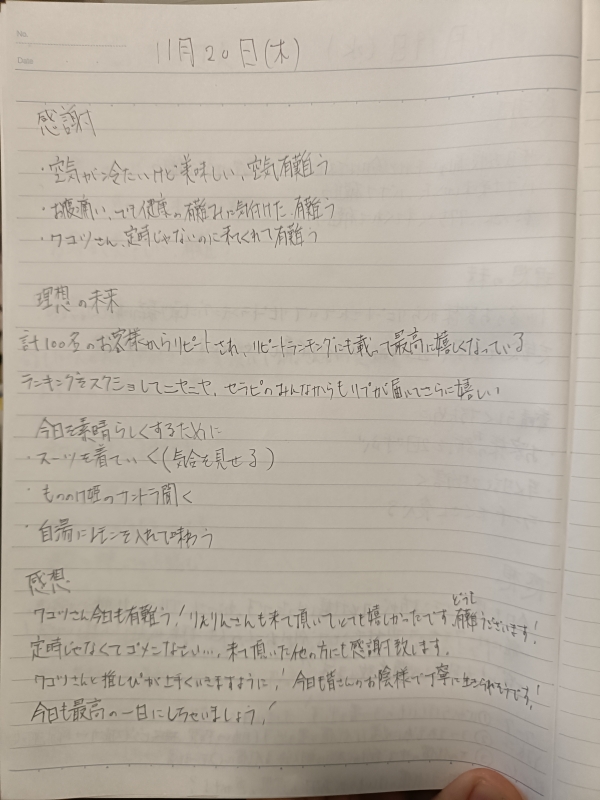 No.
Date
11月20日(木)
感謝
・空気が冷たいけど美味しい、空気有難う
・お腹痛い、でも健康の有難みに気付けた、有難う
・ワコツさん、定時じゃないのに来てくれて有難う
理想の未来
計100名のお客様からリピートされ、リピートランキングにも載って最高に嬉しくなっている
ランキングをスクショしてニヤニヤ、セラピのみんなからもリプが届いてさらに嬉しい
今日を素晴らしくするために
・スーツを着ていく(気合を見せる)
・もののけ姫のサントラ聞く
・白湯にレモンを入れて味わう
感想
ワコツさん今日も有難う!りえりんさんも来て頂いてとても嬉しかったです、有難うございます!
どうし
定時じゃなくてゴメンなさい…、来て頂いた他の方にも感謝致します。
ワコツさんと推しぴが上手くいきますように!今日も皆さんのお陰様で丁寧に生きられそうです!
今日も最高の一日にしちゃいましょう!